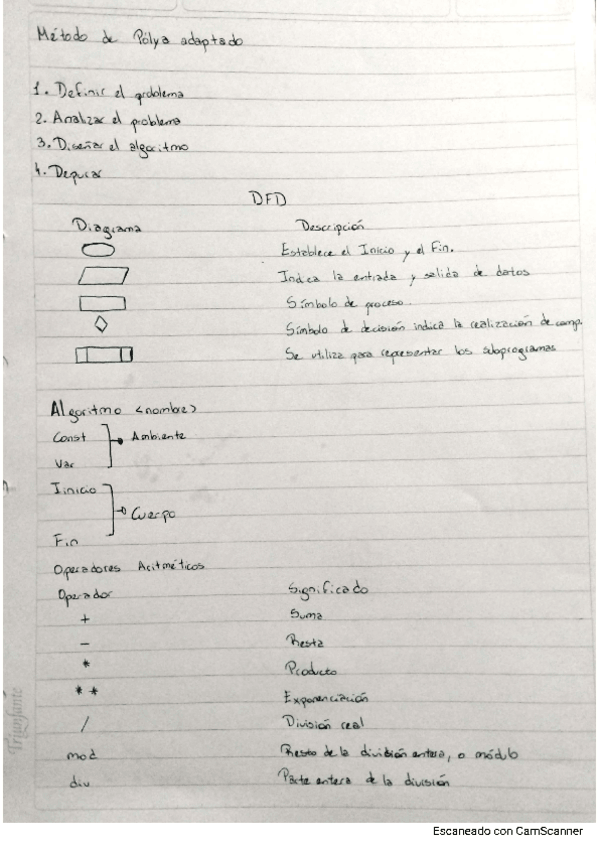 Método de Pólya adaptado
1. Definir el problema
2. Analizar el problema
3. Diseñar el algoritmo
4. Depurar
DFD
Diagrama Descripción
Establece el Inicio y el Fin.
Indica la entrada y salida de datos
Símbolo de proceso.
Símbolo de decisión indica la realización de comp.
Se utiliza para representar los subprogramas
Algoritmo <nombre>
Const
Ambiente
Var
Inicio
Cuerpo
Fin
Operadores Aritméticos
Operador Significado
+ Suma
- Resta
* Producto
** Exponenciación
/ División real
mod Resto de la división entera, o módulo
div Parte entera de la división
Triunfante
Escaneado con CamScanner